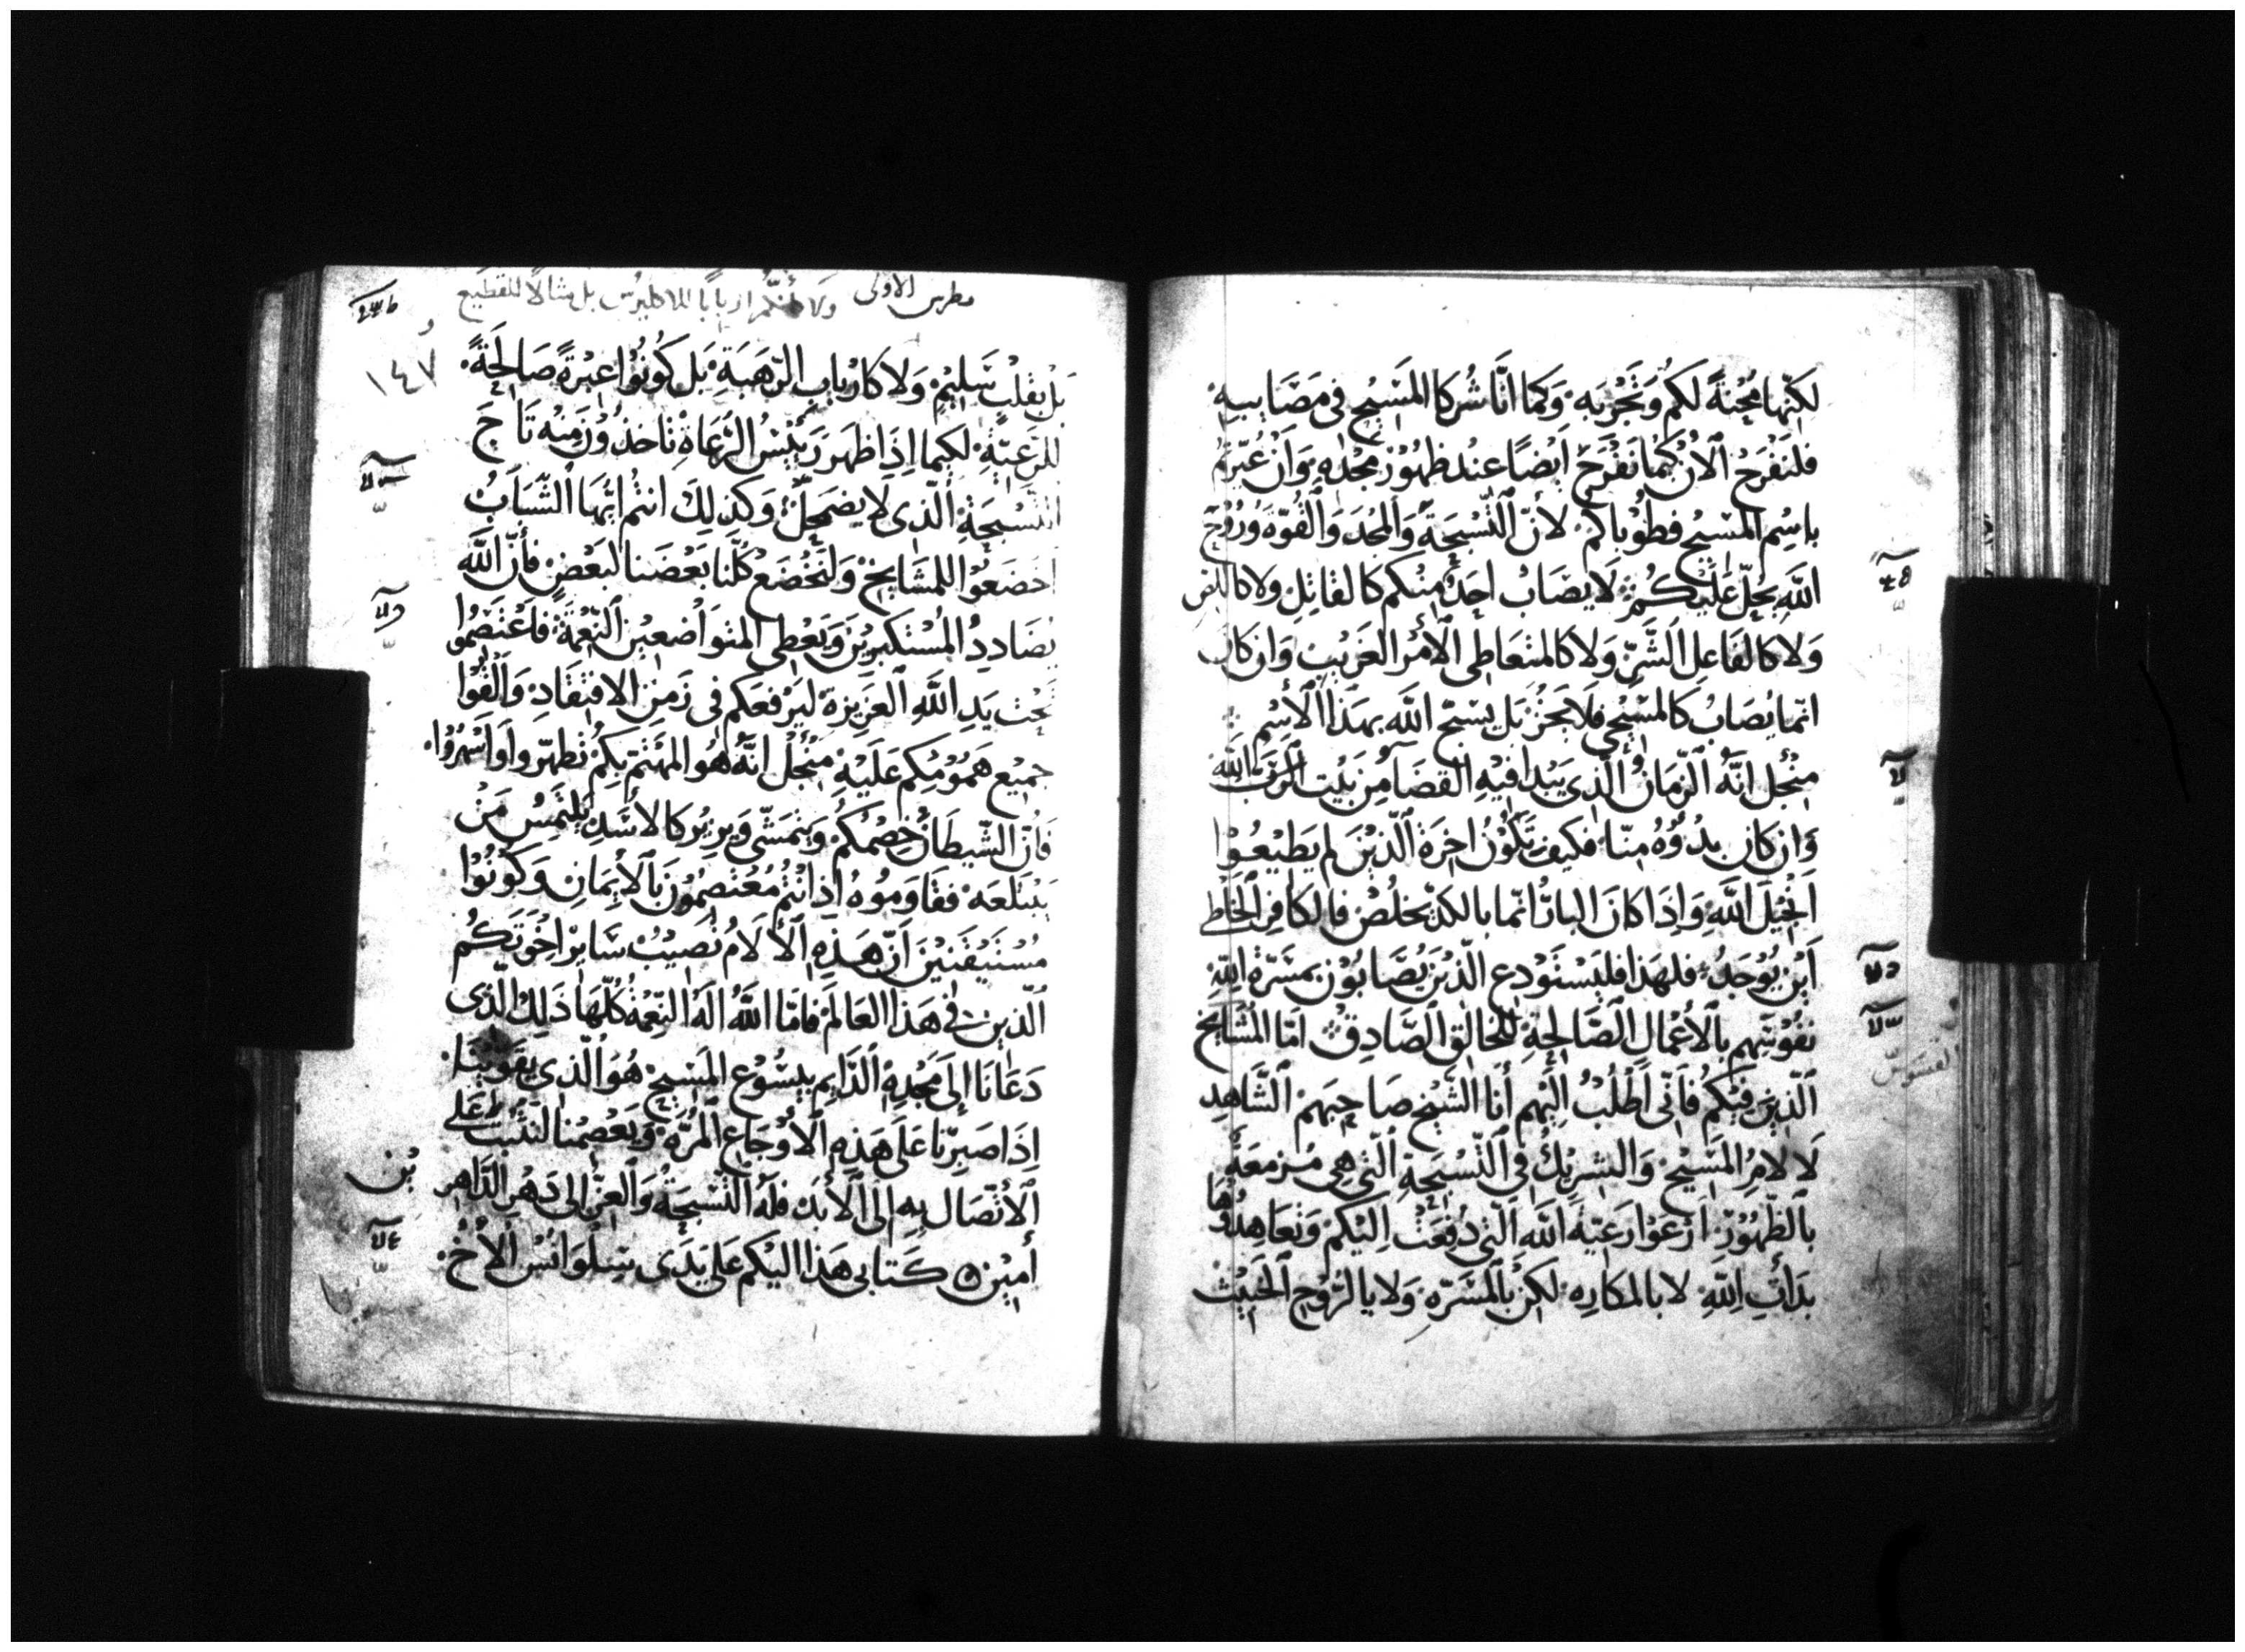 لَكِنّها مُحِنةً لَكُم وَتَجْرُبَه وَكما انَّا شُرَكا المَسِيْحِ في مَصَايبِهِ
فلنَفْرَحُ اْلآنْ كَمْا نَفْرَحَ اَيْضًا عنْد ظهُوْر مَجْدِهِ وَاَنْ عُيّرتُم
باسْمِ المَسِيْحِ فطوْباكم لأنّ التّسْبِحَةَ وَالمْجدَ وَالقُوّة وَرُوْحَ
اللَّهِ يَحُلّ عَلَيكُمْ لاَ يصَابُ اَحدٌ منكم كَالقاتِلِ ولا كاللص
وَلا كَالفَاعِلِ الَشَّرِّ وَلا كَالمتعَاطِي اْلأمْر الغَرِيْب وَان كَان
انّما يُصَابُ كَالمسِيْحي فَلا يَحزْ بَل يسَبّح اللَّه بهَذا اْلأِسْمِ
مِنْ أجْل انَّهُ الزّمَانُ الَّذِي يَبْدا فيْهِ القَضَا مِنَ بَيْت الرّبّ اللَّه
وَان كَان بدُوُّهُ مِنّا فكَيف تَكُوْنُ اخِرَة الَّذِيْنَ لم يَطِيْعُوْا
اَنْجِيْلَ اللَّهِ وَاِذَا كَانَ البارُّ انّما بالكَدِّ يخلُصْ فالكَافِر الخَاطِي
اَيْن يُوْجَدُ فلهَذا فليَسْتَوْدع الَّذيْنَ يُصَابُوْن بمسَرّة اللَّهِ
نفُوْسَهم بالأعْمَالِ الصَّالِحةِ للخَالقِ الصَّادِق امّا المشَايخ
الَّذِيْنَ فيْكُم فَاَنّي اَطْلُبُ الَيْهِم أنَا الشّيْخ صَاحِبَهمْ الشَّاهِد
لآلاَمِ المَسِيْحِ وَالشرِيْكُ في التّسْبِحَةِ الَّتي هي مُزمَعَةً
بالظّهُوْرِ ارْعَوْا رَعيّةَ اللَّه الَّتي دُفعَتْ اِليْكمْ وَتعَاهدُوْهَا
بذات اللَّهِ لا بالمكَارِه لكِن بالمسَرّه وَلا بالرُّوْحِ الخَبيْث
القسوس
بطرس الاولى
ولا كأنكم اربابًا للاكليرُس بل مثالاً للقطيع
١٤٧
بَل بقلْبٍ سَلِيْمٍ وَلا كارْبابِ الرّهبَةِ بَل كُونُوْا عِبْرَةً صَالِحَةً
للرّعيّةِ لكيما اِذا ظهَرَ رَئيْسُ الرّعَاة تاخذُوْنَ مِنْه تَاجَ
التّسْبِحَةِ الَّذي لا يضمَحِلّ وَكذلِكَ انتُم ايّهَا الشّبَابُ
اخضَعُوْا للمشَايخْ وَلنَخْضَعْ كُلّنَا بَعْضَنا لبَعْضٍ فأنّ اللَّه
يُضَادِدُ المُسْتكبرِيْنَ وَيَعْطي المتواضعِيْنَ النّعْمَة فاعْتَصِمُوا
تَحْت يَدِ اللَّهِ العَزِيزة ليَرْفعَكم في زَمِن الافتِقَادِ وَالْقُوا
جميْع هَمُوْمِكم عَلَيْهِ مِنْ أجْل انَّهُ هُو المُهْتم بكُم تطهّروا وَاسْهرُوْا
فَانّ الشّيطَان خِصْمُكُم وَيتمَشّي وَيزيْر كالأسَدِ يلتَمِسُ مَنْ
يَبْتلعَه فقَاوِمُوهُ اذ انْتُم مُعْتصِمُوْنَ بالأيْمَانِ وَكُونُوْا
مُسْتَيقِنيْنَ اَنّ هَذِه اْلآلاَمُ نُصِيْبُ سَايرْ اخوَتكُم
الَّذين في هَذا العَالَم فامّا اللَّهُ الَهُ النّعْمةُ كلّهَا ذَلِك الَّذي
دَعَانَا إلَى مَجْدِهِ الدَّايم بيسُوْع المَسِيْح هُو الَّذي يقَوّيْنَا
اِذَا صَبرنَا عَلَى هَذِهِ اْلأوْجَاع المُرّه وَيَعْصِمُنا لنَثْبت عَلى
اْلأتّصَال بِهِ إلى اْلأبَد فلَهُ التّسْبِحَةُ وَالعِزّ إلى دَهْرِ الدَّاهِرِيْن
أميْن كتَابي هَذا اليْكم عَلى يَدَي سِلْوَانُسْ اْلأخْ